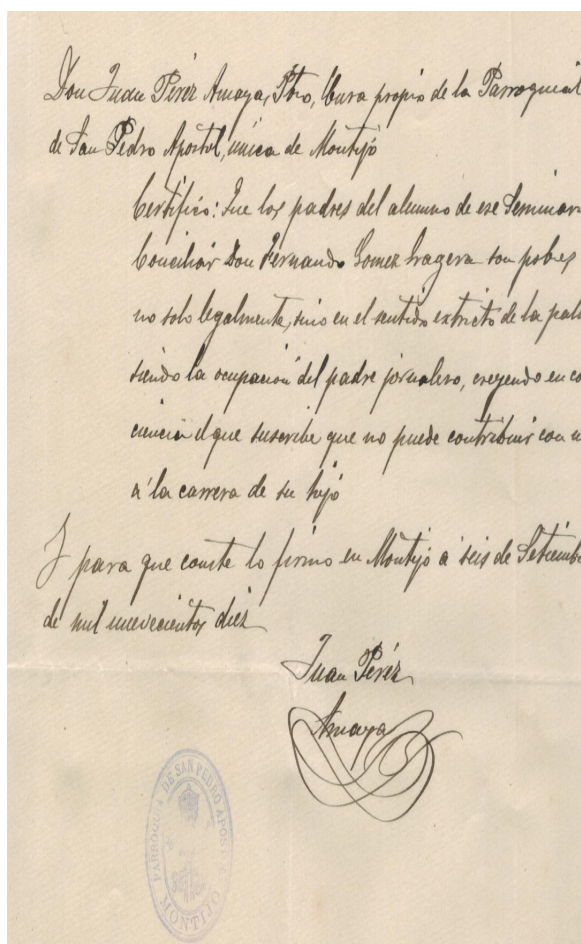 Don Juan Pérez Amaya, Pbro, Cura propio de la Parroquial
de San Pedro Apostol, única de Montijo
Certifico: Que los padres del alumno de ese Seminar
Conciliar Don Fernando Gomez Iragera son pobres
no solo legalmente, sino en el sentido extricto de la pala
siendo la ocupación del padre jornalero, creyendo en co
ciencia el que suscribe que no puede contribuir con
á la carrera de su hijo
Y para que conste lo firmo en Montijo á seis de Setiemb
de mil nuevecientos diez
Juan Pérez
Amaya
PARROQUIA DE SAN PEDRO APOSTOL
MONTIJO